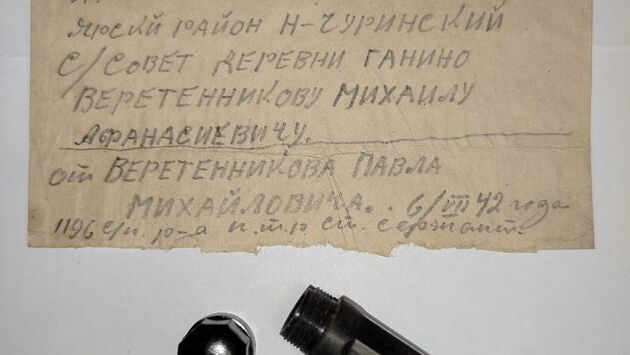 ЯРСКЙ РАЙОН Н-ЧУРИНСКИЙ
С/СОВЕТ ДЕРЕВНИ ГАНИНО
ВЕРЕТЕННИКОВУ МИХАИЛУ
АФАНАСИЕВИЧУ.
от ВЕРЕТЕННИКОВА ПАВЛА
МИХАЙЛОВИЧА. 6/VII 42 года
1196 с/п. р-а п.т.р ст. сержант.